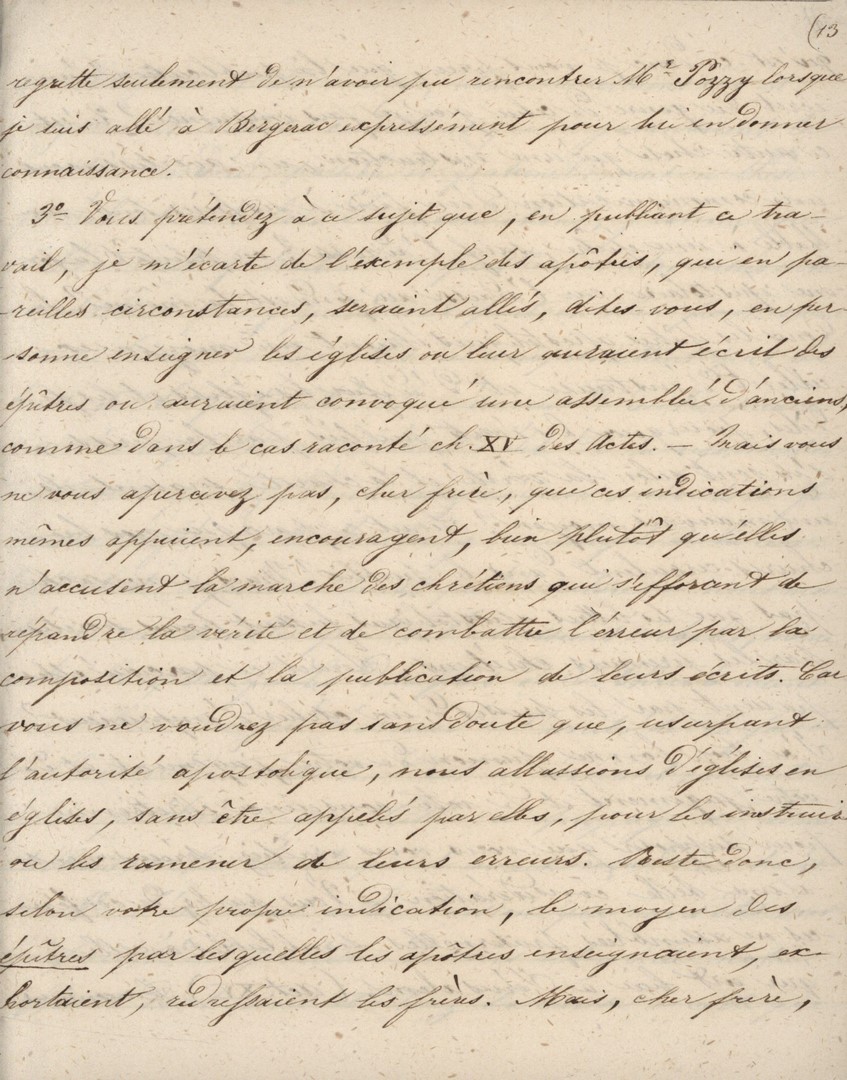 (13
regrette seulement de n'avoir pu rencontrer Mr Pozzy lorsque
je suis allé à Bergerac expressément pour lui en donner
connaissance.
3o Vous prétendez à ce sujet que, en publiant ce tra-
vail, je m'écarte de l'exemple des apôtres, qui en pa-
-reilles circonstances, seraient allés, dites-vous, en per-
-sonne enseigner les églises ou leur auraient écrit des
épîtres ou auraient convoqué une assemblée d'anciens,
comme dans le cas raconté ch. XV des Actes. — Mais vous
ne vous apercevez pas, cher frère, que ces indications
mêmes appuient, encouragent, bien plutôt qu'elles
n'accusent la marche des chrétiens qui s'efforcent de
répandre la vérité et de combattre l'erreur par la
composition et la publication de leurs écrits. Car
vous ne voudrez pas sans doute que, usurpant
l'autorité apostolique, nous allassions d'églises en
églises, sans être appelés par elles, pour les instruire
ou les ramener de leurs erreurs. Reste donc,
selon votre propre indication, le moyen des
épîtres par lesquelles les apôtres enseignaient, ex-
hortaient, redressaient les frères. Mais, cher frère,